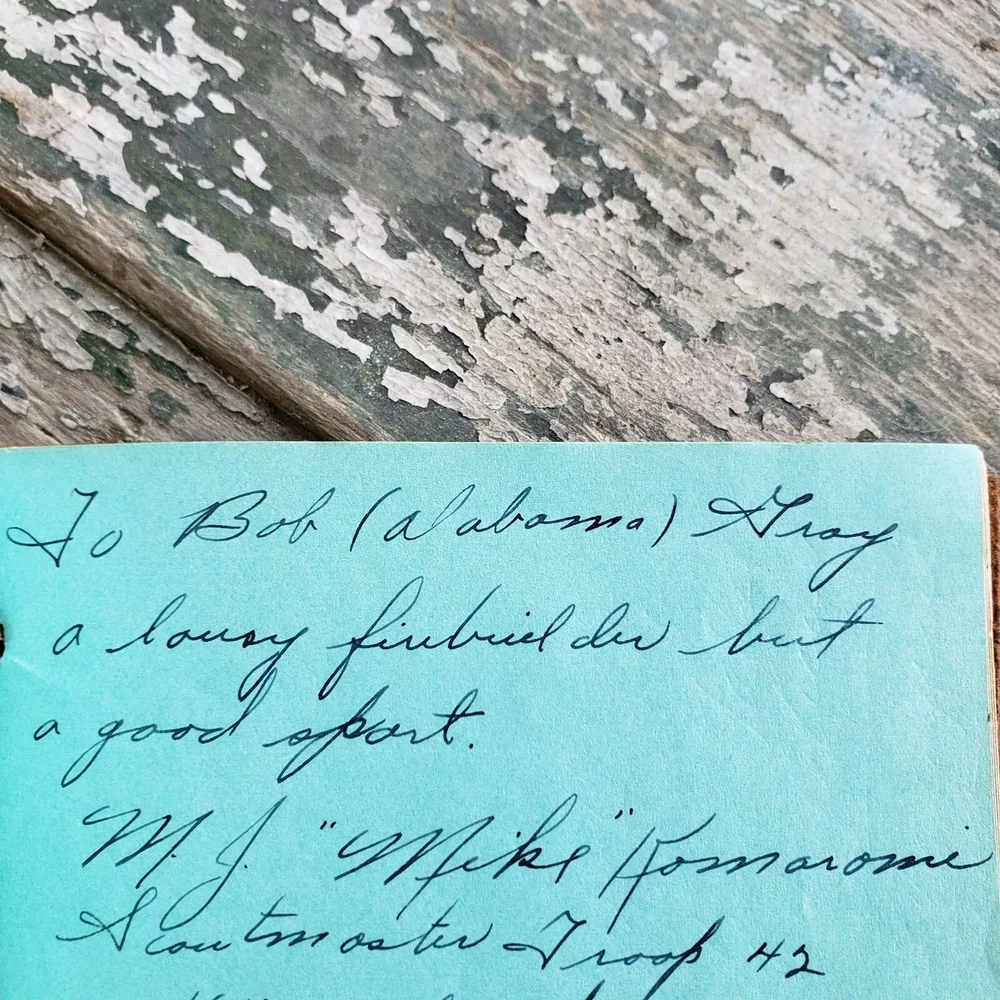 To Bob (Alabama) Gray
a lousy firebuilder but
a good sport.
M. J. "Mike" Komarome
Scoutmaster Troop 42